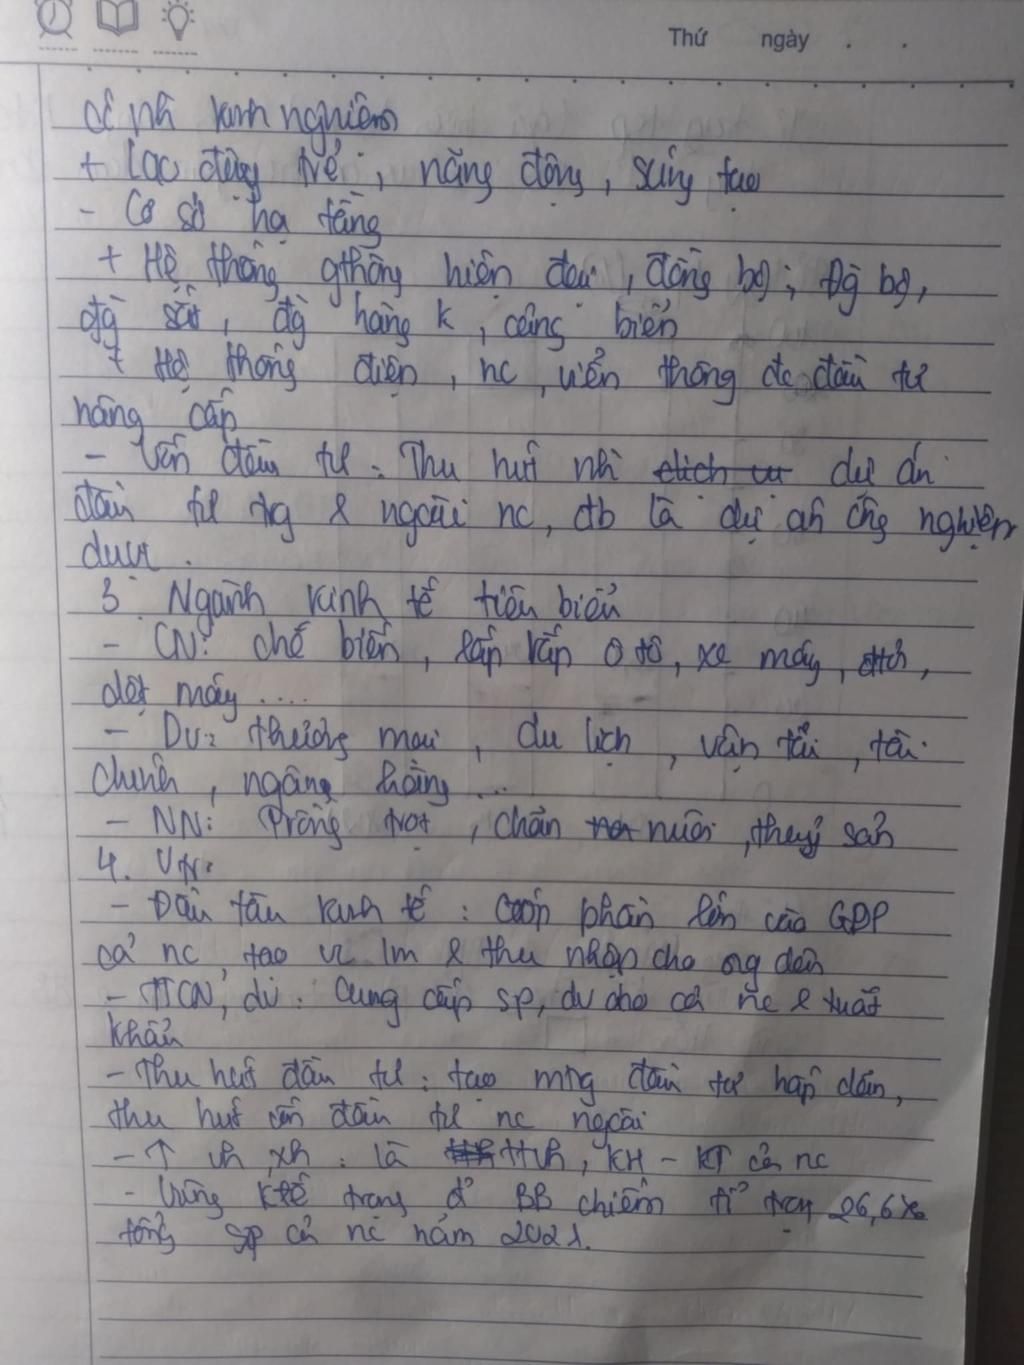 Thứ ngày . .
có nh kinh nghiệm
+ Lao động trẻ ; năng động, sáng tạo
- Cơ sở hạ tầng
+ Hệ thống gthông hiện đại, đồng bộ ; Đg bộ,
đg sắt, đg hàng k, cảng biển
+ Hệ thống điện, nc, viễn thông đc đầu tư
nâng cấp
- Vốn đầu tư : Thu hút nh dự án
đầu tư trg & ngoài nc, đb là dự án công nghiệp
3. Ngành kinh tế tiêu biểu
- CN: chế biến, lắp ráp ô tô, xe máy, đtử,
dệt máy ....
- DV: thương mại, du lịch, vận tải, tài
chính, ngâng hàng ...
- NN: trồng trọt, chăn nuôi, thuỷ sản
4. VTr:
- Đầu tàu kinh tế : phần lớn vào GDP
cả nc, tạo vc lm & thu nhập cho ng dân
- TTCN, dv : Cung cấp sp, dv cho cả nc & xuất
khẩu
- Thu hút đầu tư : tạo mtrg đầu tư hấp dẫn,
thu hút vốn đầu tư nc ngoài
- ↑ vh, xh : là TTvh, KH - KT cả nc
- Vùng Ktế trọng đ BB chiếm tỉ trọng 26,6%
tổng sp cả nc năm 2021.